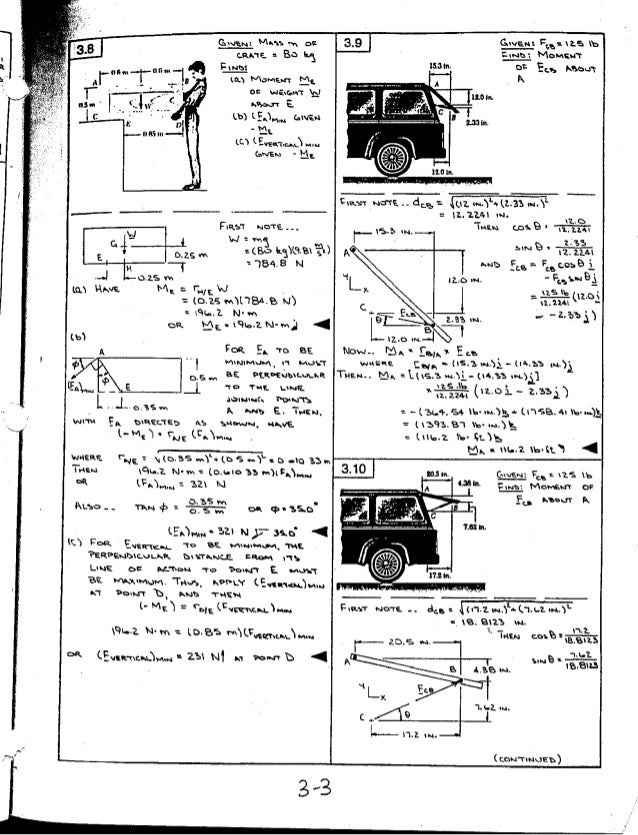 3.8
GIVEN: MASS m OF
CRATE = 80 kg
FIND:
(a) MOMENT ME
OF WEIGHT W
ABOUT E
(b) (FA)MIN GIVEN
-ME
(c) (FVERTICAL)MIN
GIVEN -ME
0.6 m
0.6 m
A
B
0.5 m
W
C
E
D
0.85 m
FIRST NOTE...
W = mg
= (80 kg)(9.81 m/s²)
= 784.8 N
W
G
E
H
0.25 m
0.25 m
(a) HAVE ME = rH/E W
= (0.25 m)(784.8 N)
= 196.2 N·m
OR ME = 196.2 N·m
(b)
FOR FA TO BE
MINIMUM, IT MUST
BE PERPENDICULAR
TO THE LINE
JOINING POINTS
A AND E. THEN,
A
φ
φ
(FA)MIN
E
0.5 m
0.35 m
WITH FA DIRECTED AS SHOWN, HAVE
(-ME) = rA/E (FA)MIN
WHERE rA/E = √(0.35 m)²+(0.5 m)² = 0.610 33 m
THEN 196.2 N·m = (0.610 33 m)(FA)MIN
OR (FA)MIN = 321 N
ALSO.. TAN φ = 0.35 m / 0.5 m OR φ = 35.0°
(FA)MIN = 321 N 35.0°
(c) FOR FVERTICAL TO BE MINIMUM, THE
PERPENDICULAR DISTANCE FROM ITS
LINE OF ACTION TO POINT E MUST
BE MAXIMUM. THUS, APPLY (FVERTICAL)MIN
AT POINT D, AND THEN
(-ME) = rD/E (FVERTICAL)MIN
196.2 N·m = (0.85 m)(FVERTICAL)MIN
OR (FVERTICAL)MIN = 231 N↑ AT POINT D
3.9
GIVEN: FCB = 125 lb
FIND: MOMENT
OF FCB ABOUT
A
15.3 in.
A
12.0 in.
C
B
2.33 in.
12.0 in.
FIRST NOTE.. dCB = √(12 IN.)²+(2.33 IN.)²
= 12.2241 IN.
THEN COS θ = 12.0 / 12.2241
SIN θ = 2.33 / 12.2241
AND FCB = FCB COS θ i
- FCB SIN θ j
= 125 lb / 12.2241 (12.0 i
- 2.33 j)
15.3 IN.
A
y
x
12.0 IN.
C
θ
FCB
B
2.33 IN.
12.0 IN.
NOW.. MA = rB/A × FCB
WHERE rB/A = (15.3 IN.)i - (14.33 IN.)j
THEN.. MA = [(15.3 IN.)i - (14.33 IN.)j]
× 125 lb / 12.2241 (12.0 i - 2.33 j)
= -(364.54 lb·IN.)k + (1758.41 lb·IN.)k
= (1393.87 lb·IN.)k
= (116.2 lb·ft)k
MA = 116.2 lb·ft
3.10
GIVEN: FCB = 125 lb
FIND: MOMENT OF
FCB ABOUT A
20.5 in.
4.38 in.
A
B
C
7.62 in.
17.2 in.
FIRST NOTE .. dCB = √(17.2 IN.)²+(7.62 IN.)²
= 18.8123 IN.
THEN COS θ = 17.2 / 18.8123
SIN θ = 7.62 / 18.8123
20.5 IN.
A
B
4.38 IN.
y
x
FCB
C
θ
7.62 IN.
17.2 IN.
(CONTINUED)
3-3